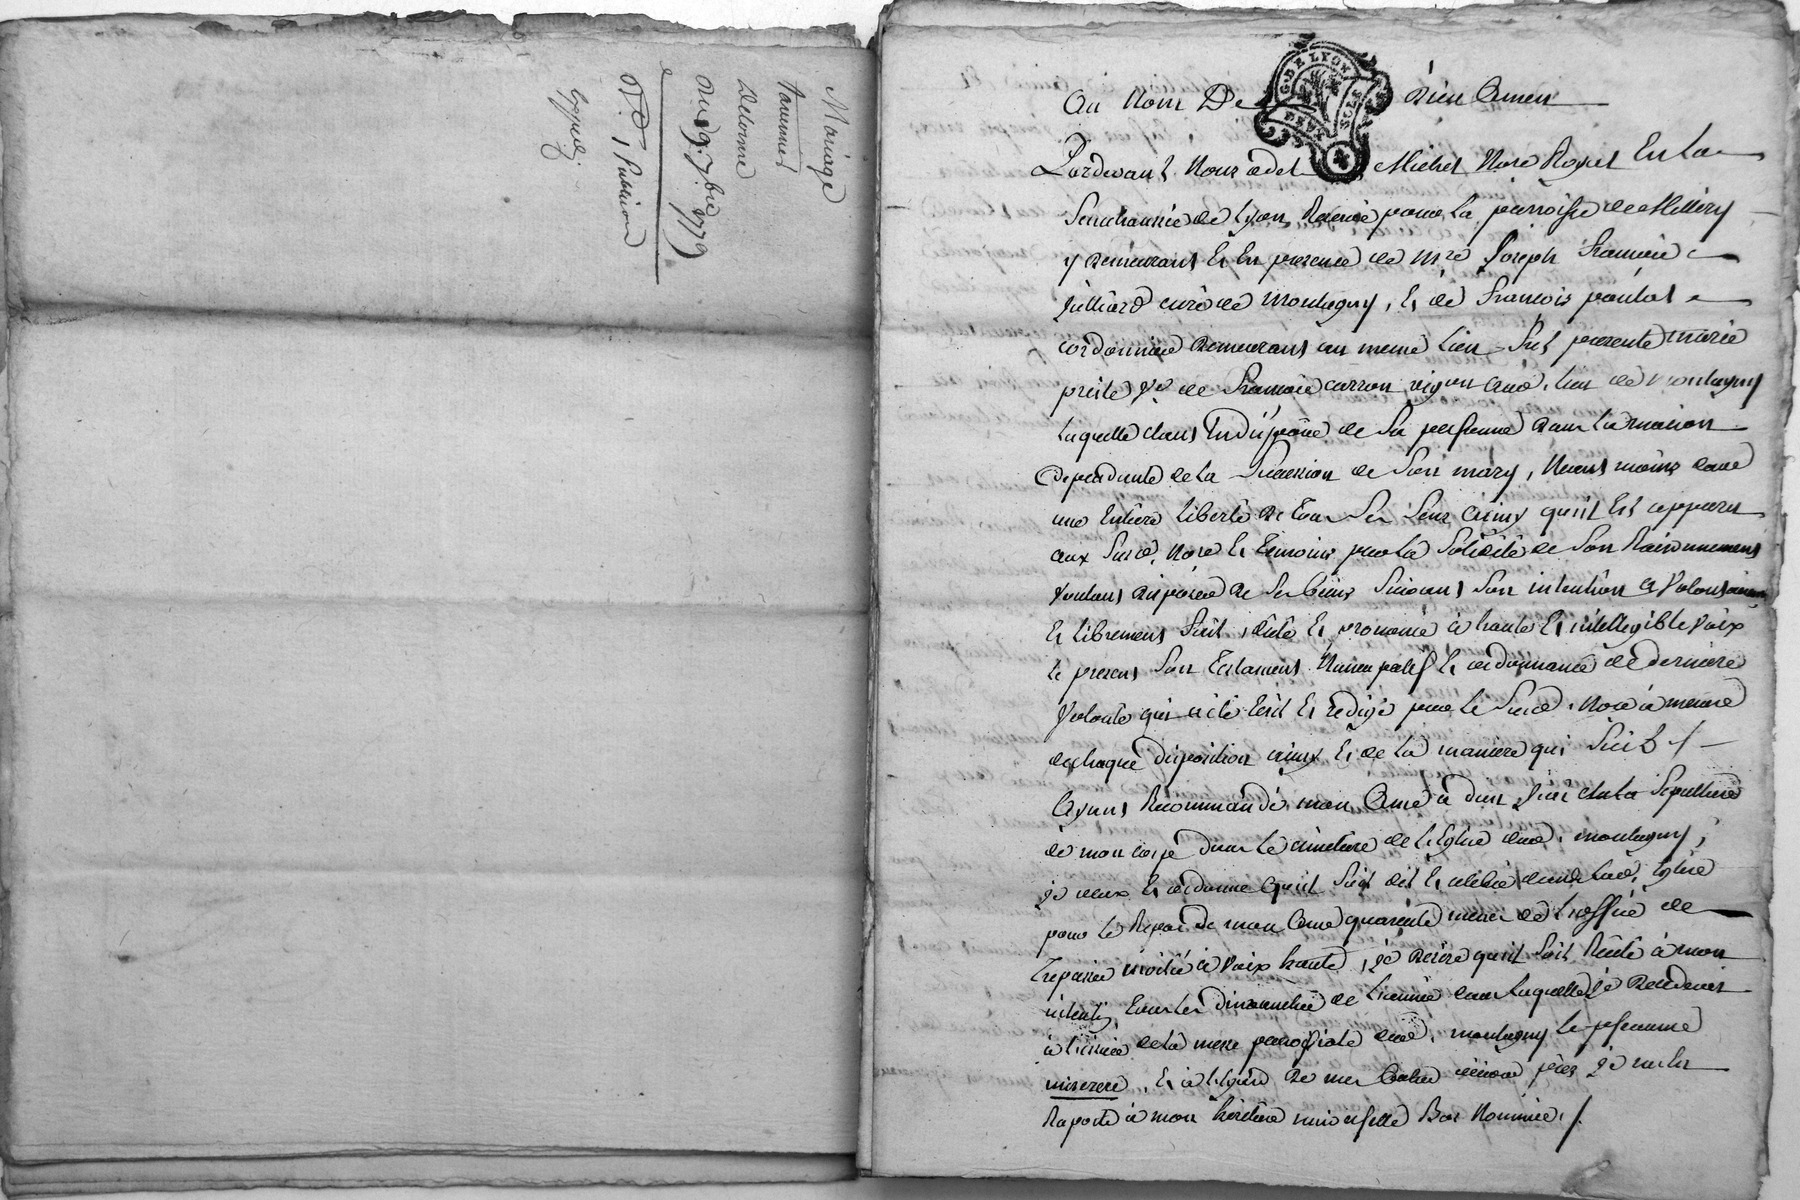 Mariage
Delorme
du 9. 7bre 1779
Exped.
Au Nom De Dieu Amen
G. DE LYON
DEUX SOLS
4
Pardevant Nous Michel Nore Royal En La
Senechaussée de Lyon Reservé pour La parroisse de Millery
y demeurant Et En presence de mre Joseph François
Julliard curé de montagny, Et de François
cordonnier demeurant au meme Lieu fut presente marie
vve de François carron vigneron aud. Lieu de Montagny
Laquelle etant Indisposée de Sa personne dans La maison
dependante de La Succession de Son mary, Neant moins dans
une Entiere Liberté de tous Ses Sens ainsy qu'il Est apparu
aux Susd. Nore Et temoins par La Solidité de Son Raisonnement
Voulant disposer de Ses biens Suivant Son intention a Volontairement
Et Librement fait, dicté Et prononcé à haute Et intellegible Voix
Le present Son Testament Nuncupatif Et ordonnance de derniere
Volonté qui a été Ecrit Et redigé par Le Susd. Nore à mesure
de chaque disposition ainsy Et de La maniere qui Suit /
Ayant Recommandé mon Ame à dieu Elu La Sepulture
de mon corps dans Le cimetiere de L'Eglise dud. montagny,
je veux Et ordonne qu'il Soit dit Et celebré dans Lad. Eglise
pour Le Repos de mon Ame quarente messes de L'office de
trepassés moitié à Voix haute, je desire qu'il Soit Recité à mon
intention tous Les dimanches de L'année dans Laquelle je decederai
à L'issüe de La messe paroissiale dud. montagny Le pseaume
miserere, Et à L'egard de mes autres œuvres pies je m'en
Raporte à mon heritiere universelle Bas Nommée. /.